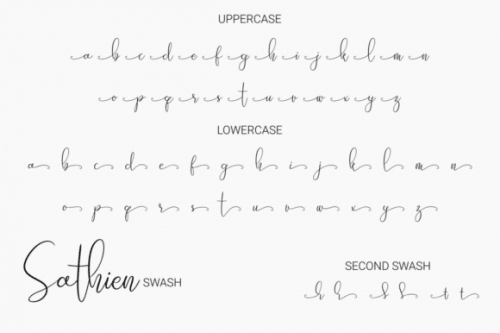 UPPERCASE
a b c d e f g h i j k l m n
o p q r s t u v w x y z
LOWERCASE
a b c d e f g h i j k l m n
o p q r s t u v w x y z
Sathien SWASH
SECOND SWASH
t t